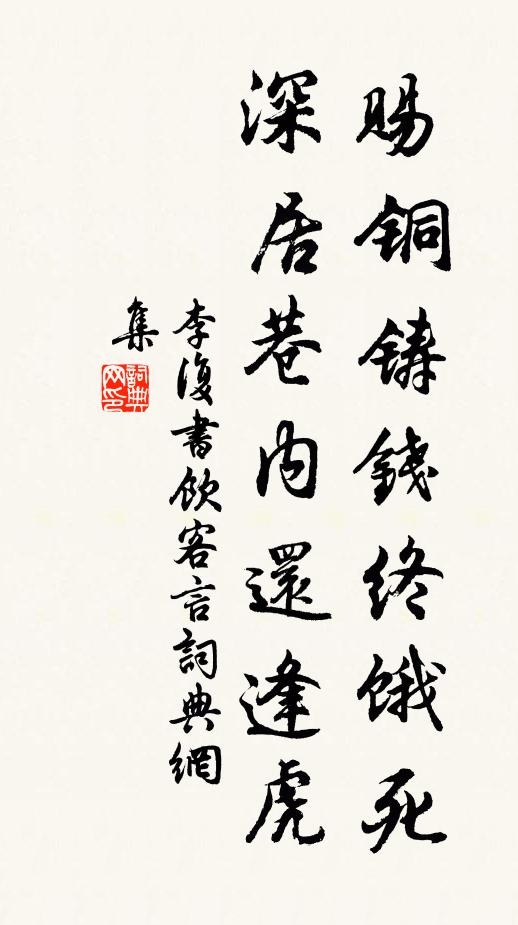 赐铜铸錢终饿死
深居巷内還逢虎
李復書飲客言詞典網
集
詞典网印